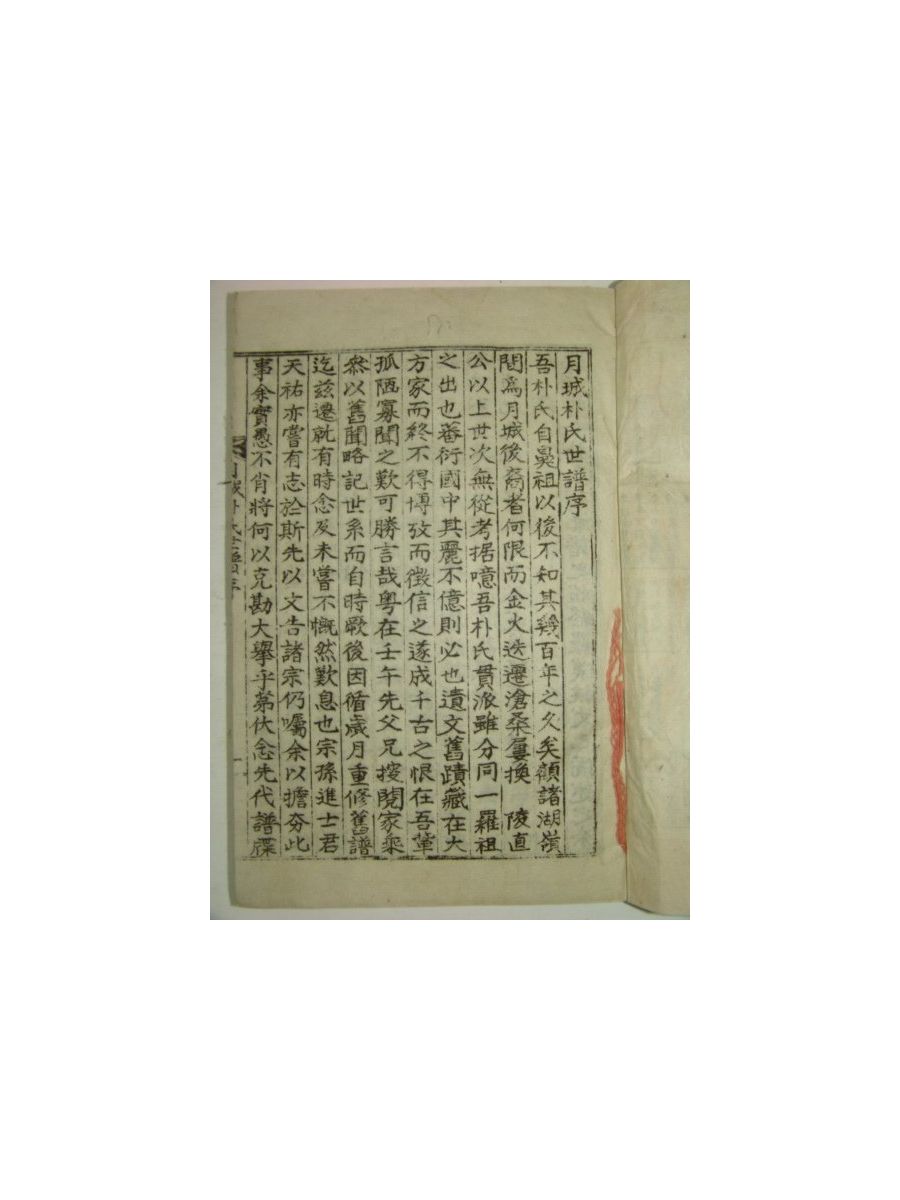 月城朴氏世譜序
吾朴氏自鼻祖以後不知其幾百年之久矣顧諸湖嶺
間爲月城後裔者何限而金火迭遷滄桑屢換　陵直
公以上世次無從考据噫吾朴氏貫派雖分同一羅祖
之出也蕃衍國中其麗不億則必也遺文舊蹟藏在大
方家而終不得博攷而徵信之遂成千古之恨在吾輩
孤陋寡聞之歎可勝言哉粤在壬午先父兄搜閱家乘
叅以舊聞略記世系而自時厥後因循歲月重修舊譜
迄玆遷就有時念及未嘗不慨然歎息也宗孫進士君
天祐亦嘗有志於斯先以文告諸宗仍囑余以擔夯此
事余實愚不肖將何以克勘大擧乎第伏念先代譜牒
月城朴氏世譜序